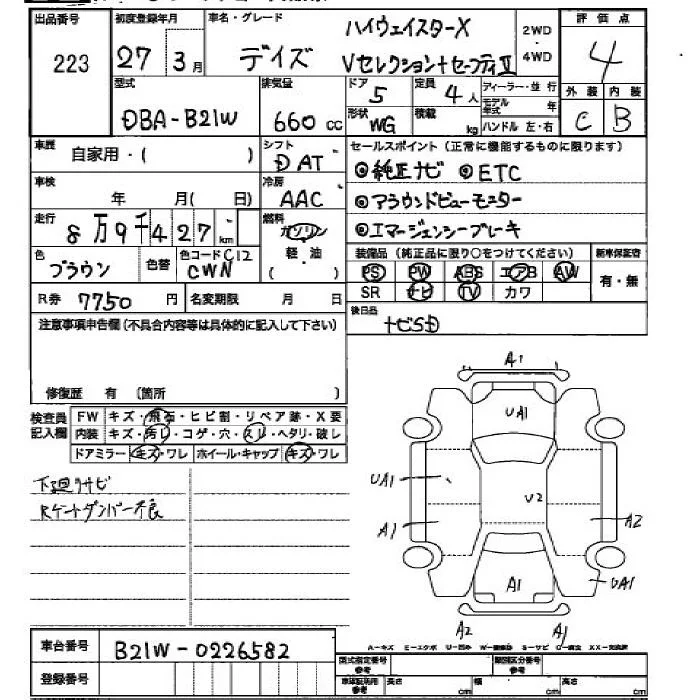 出品番号 初度登録年月 車名・グレード ハイウェイスターX 2WD 評価点
223 27 3月 デイズ Vセレクション+セーフティⅡ 4WD 4
型式 排気量 ドア 5 定員 4人 ディーラー・並行 外装 内装
DBA-B21W 660cc 形状 WG 積載 kg モデル年式 年 C B
ハンドル 左・右
車歴 自家用・( ) シフト DAT セールスポイント(正常に機能するものに限ります)
◎純正ナビ ◎ETC
車検 年 月( 日) 冷房 AAC ◎アラウンドビューモニター
走行 8万9千427km 燃料 ガソリン ◎エマージェンシーブレーキ
軽・油
( )
色 ブラウン 色替 色コードC12 CWN 装備品(純正品に限り○をつけてください) 新車保証書
PS PW ABS エアB AW 有・無
R券 7750円 名変期限 月 日 SR ナビ TV カワ
注意事項申告欄(不具合内容等は具体的に記入して下さい) 後日品 ナビSD
修復歴 有(箇所 )
検査員記入欄 FW キズ・飛石・ヒビ割・リペア跡・X要
内装 キズ・汚レ・コゲ・穴・スレ・ヘタリ・破レ
ドアミラー キズ・ワレ ホイール・キャップ キズ・ワレ
下廻りサビ
Rゲートダンパー不良
A1
UA1
UA1
U2
A1 A2
A1 UA1
A2 A1
A-キズ E-エクボ U-凹み S-サビ
車台番号 B21W-0226582 型式指定番号 参考 類別区分番号 参考
登録番号 長さ cm 幅 cm 高さ cm